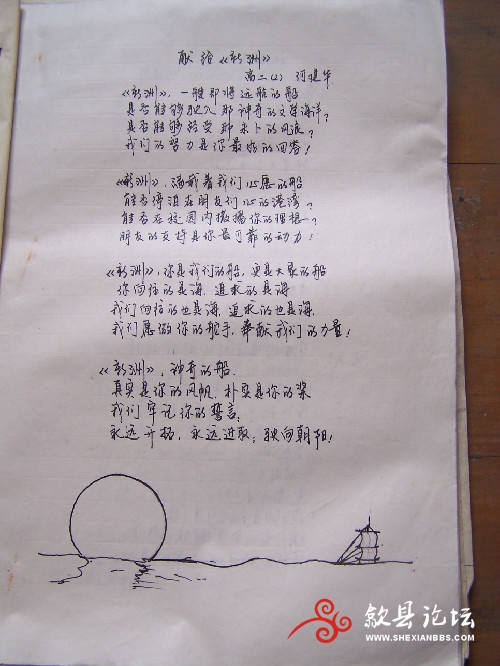 献给《新洲》
高二(2) 河建华
《新洲》，一艘即将远航的船
是否能够驶入那神奇的文学海洋？
是否能够经受那未卜的风浪？
我们的努力是你最好的回答！
《新洲》，满载着我们心愿的船
能否停泊在朋友们心的港湾？
能否在校园内撒播你的理想？
朋友的支持是你最可靠的动力！
《新洲》，你是我们的船，更是大家的船
你向往的是海，追求的是海
我们向往的也是海，追求的也是海
我们愿做你的舵手，奉献我们的力量！
《新洲》，神奇的船
真实是你的风帆，朴实是你的桨
我们牢记你的誓言：
永远开拓，永远进取；驶向朝阳！
歙县论坛
WWW.SHEXIANBBS.COM